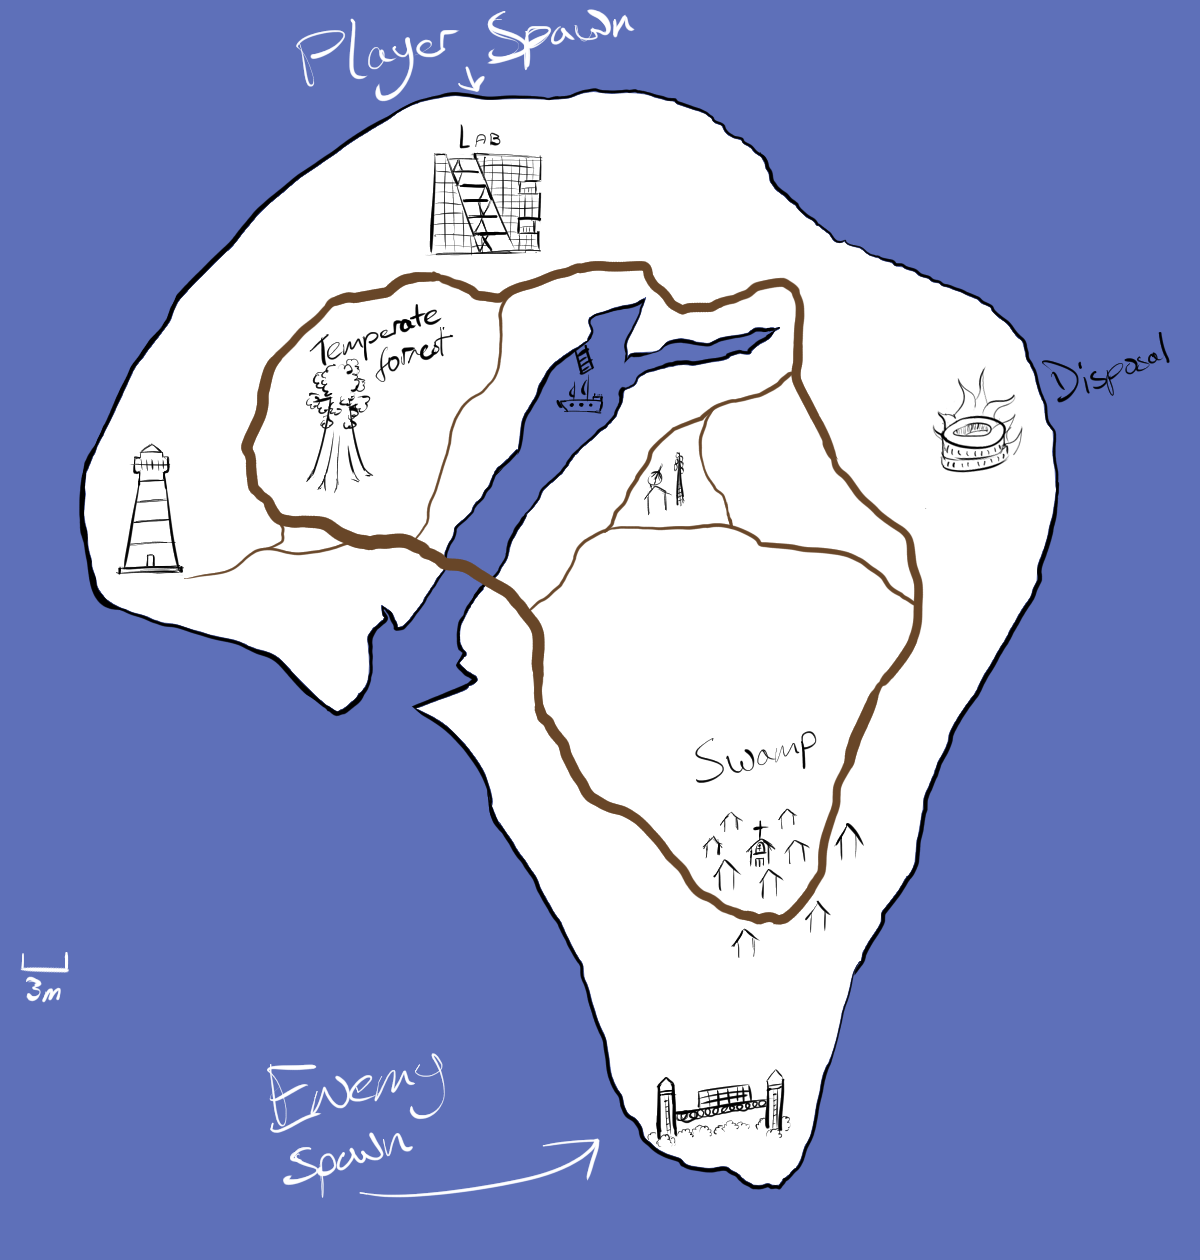 Player Spawn
LAB
Temperate
forrest
Disposal
Swamp
3m
Enemy
Spawn